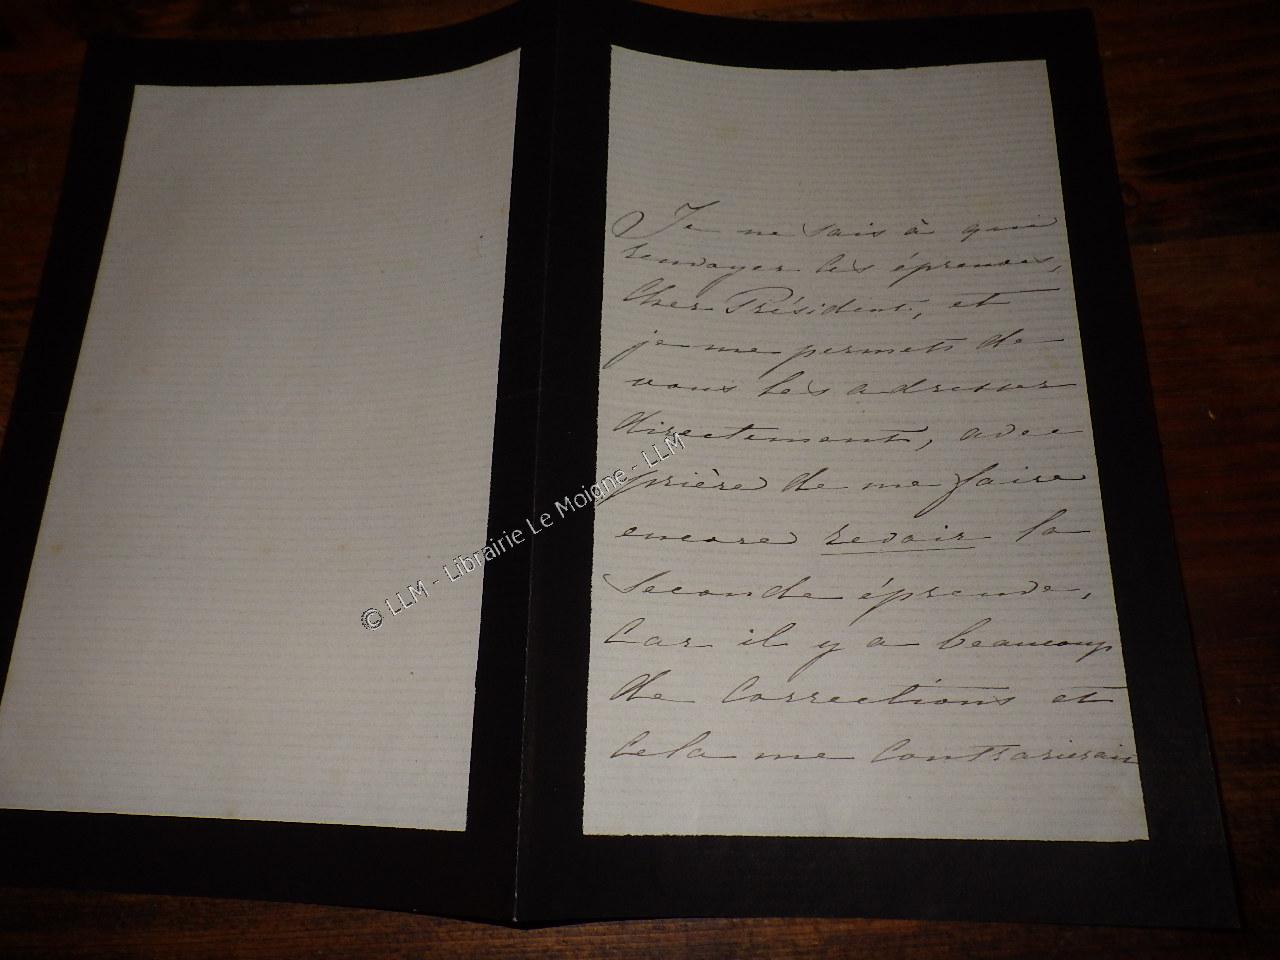 Je ne sais à qui
renvoyer les épreuves,
cher Président, et
je me permets de
vous les adresser
directement, avec
prière de me faire
encore revoir la
seconde épreuve,
car il y a beaucoup
de corrections et
cela me contrarierait
© LLM - Librairie Le Moigne - LLM